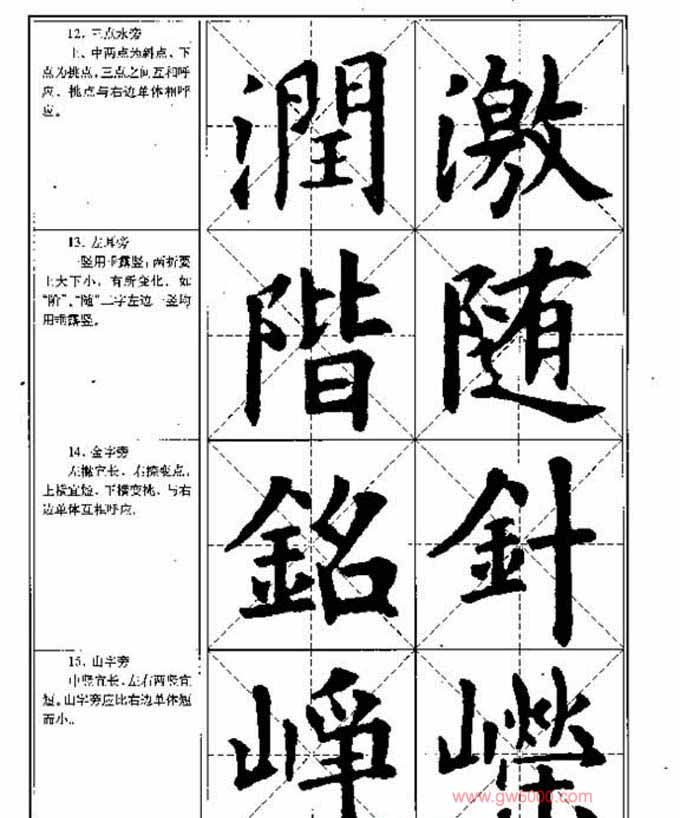 12. 三点水旁
上、中两点为斜点、下
点为挑点,三点之间互相呼
应、挑点与右边单体相呼
应。
潤 激
13. 左耳旁
竖用垂露竖;两折要
上大下小,有所变化,如
“阶”、“随”二字左边一竖均
用垂露竖。
階 随
14. 金字旁
左撇宜长,右捺变点,
上横宜短,下横变挑,与右
边单体互相呼应。
銘 針
15. 山字旁
中竖宜长,左右两竖宜
短。山字旁应比右边单体短
而小。
崢 嶸
www.gw5000.com